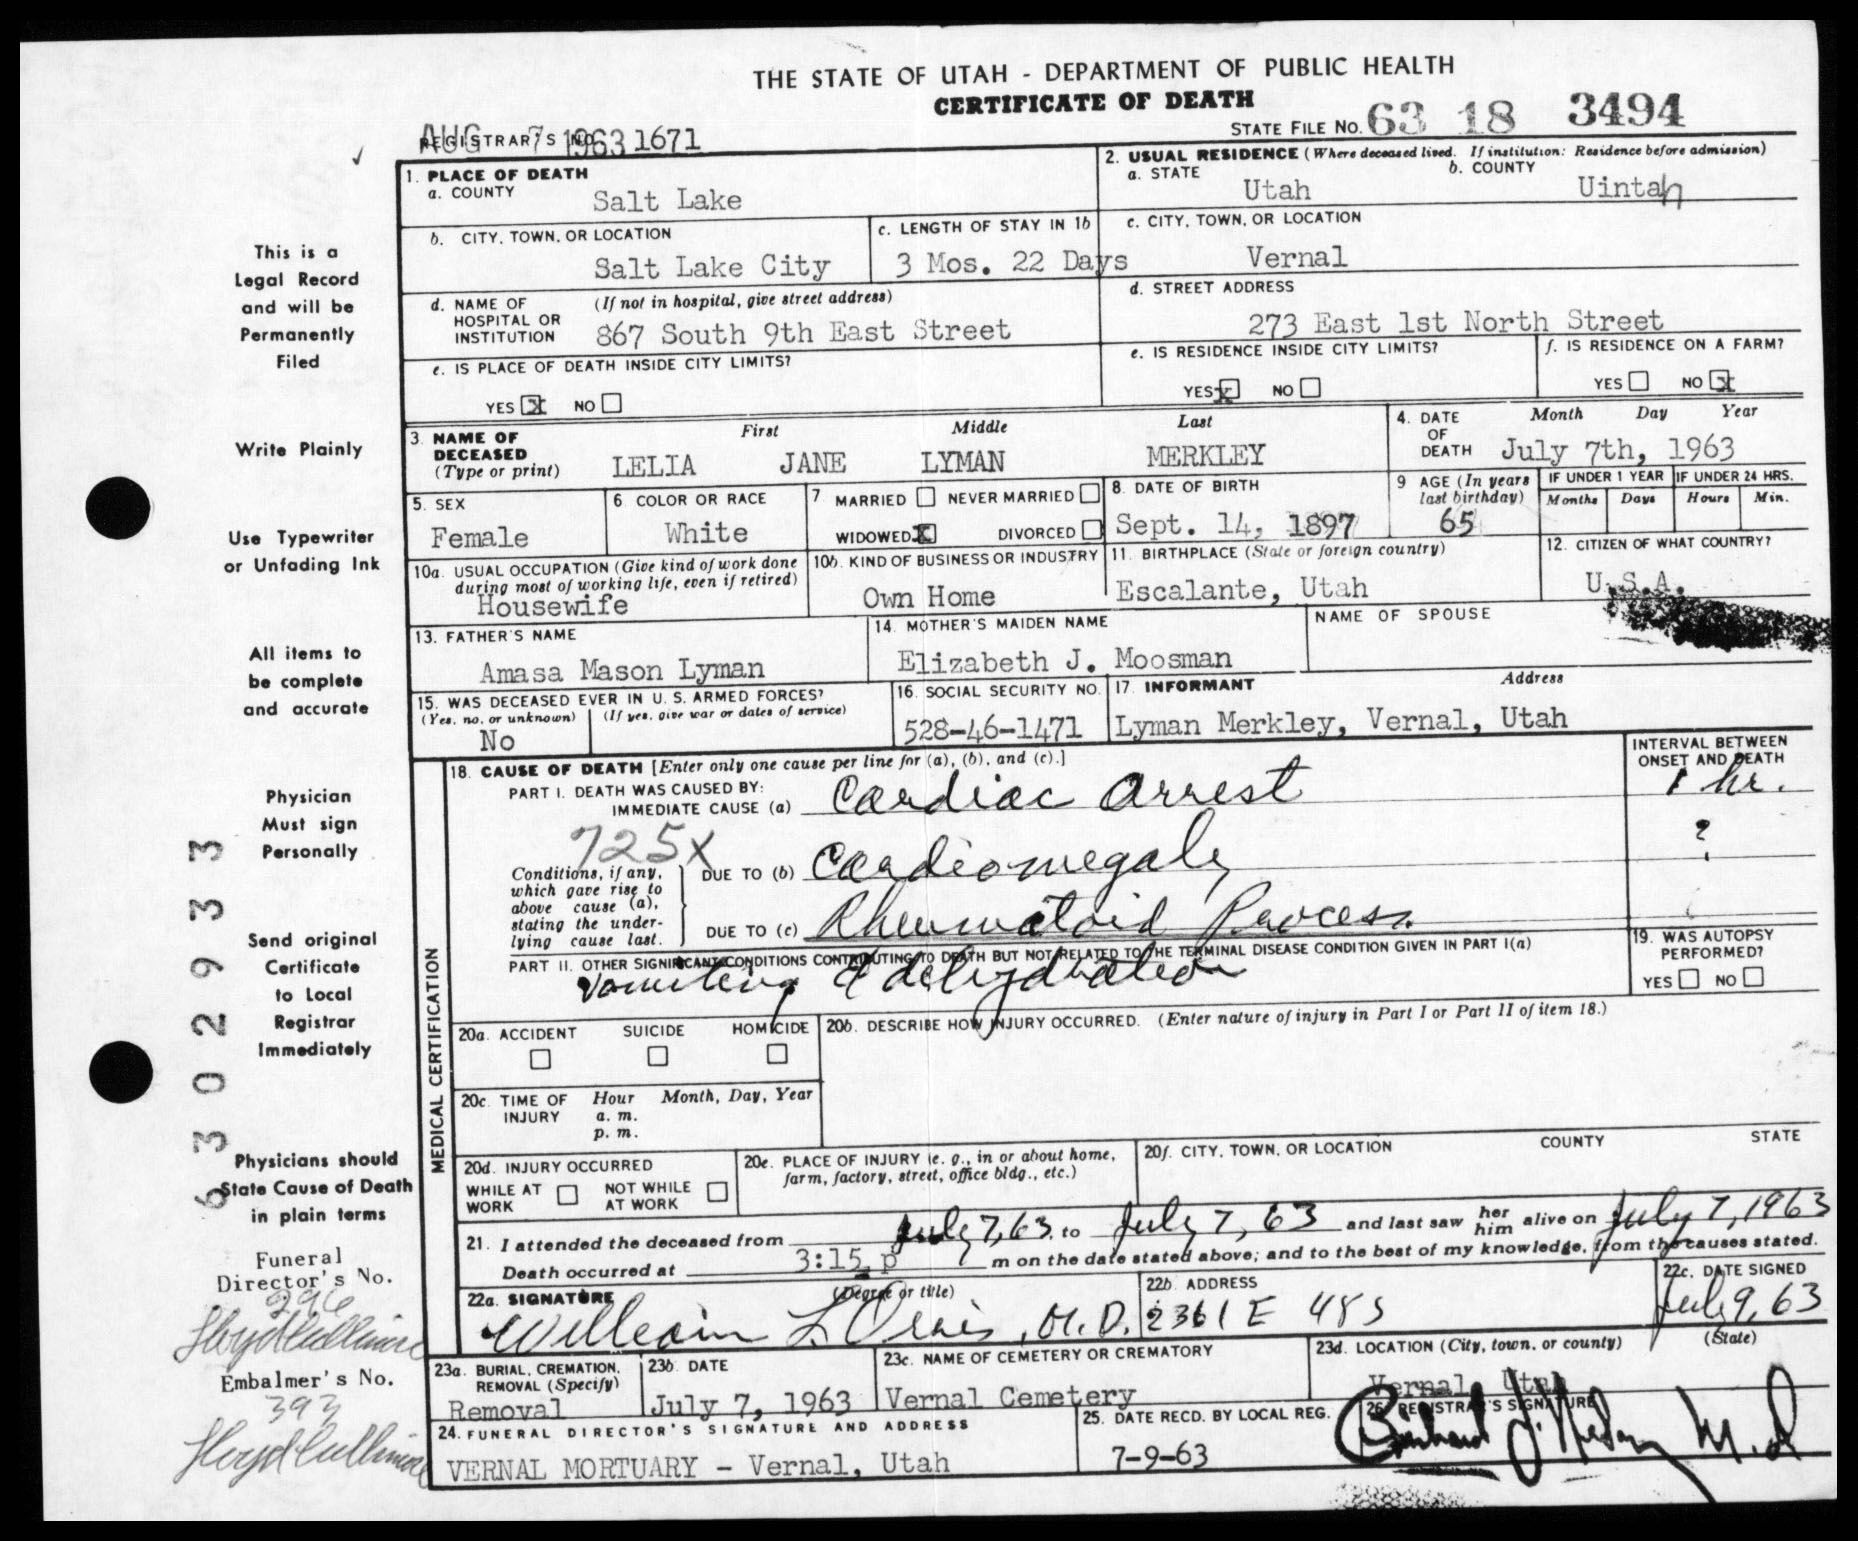 THE STATE OF UTAH - DEPARTMENT OF PUBLIC HEALTH
CERTIFICATE OF DEATH
STATE FILE NO. 63 18 3494
REGISTRAR'S NO. 1671
AUG 7 1963
1. PLACE OF DEATH
a. COUNTY
Salt Lake
2. USUAL RESIDENCE (Where deceased lived. If institution: Residence before admission)
a. STATE
Utah
b. COUNTY
Uintah
b. CITY, TOWN, OR LOCATION
Salt Lake City
c. LENGTH OF STAY IN 1b
3 Mos. 22 Days
c. CITY, TOWN, OR LOCATION
Vernal
d. NAME OF HOSPITAL OR INSTITUTION
(If not in hospital, give street address)
867 South 9th East Street
d. STREET ADDRESS
273 East 1st North Street
e. IS PLACE OF DEATH INSIDE CITY LIMITS?
YES X NO
e. IS RESIDENCE INSIDE CITY LIMITS?
YES X NO
f. IS RESIDENCE ON A FARM?
YES NO X
3. NAME OF DECEASED (Type or print)
First Middle Last
LELIA JANE LYMAN MERKLEY
4. DATE OF DEATH
Month Day Year
July 7th, 1963
5. SEX
Female
6. COLOR OR RACE
White
7. MARRIED NEVER MARRIED
WIDOWED X DIVORCED
8. DATE OF BIRTH
Sept. 14, 1897
9 AGE (In years last birthday)
65
IF UNDER 1 YEAR
Months Days
IF UNDER 24 HRS.
Hours Min.
10a. USUAL OCCUPATION (Give kind of work done during most of working life, even if retired)
Housewife
10b. KIND OF BUSINESS OR INDUSTRY
Own Home
11. BIRTHPLACE (State or foreign country)
Escalante, Utah
12. CITIZEN OF WHAT COUNTRY?
U.S.A.
13. FATHER'S NAME
Amasa Mason Lyman
14. MOTHER'S MAIDEN NAME
Elizabeth J. Moosman
NAME OF SPOUSE
15. WAS DECEASED EVER IN U. S. ARMED FORCES?
(Yes, no, or unknown) (If yes, give war or dates of service)
No
16. SOCIAL SECURITY NO.
528-46-1471
17. INFORMANT Address
Lyman Merkley, Vernal, Utah
MEDICAL CERTIFICATION
18. CAUSE OF DEATH [Enter only one cause per line for (a), (b), and (c).]
INTERVAL BETWEEN ONSET AND DEATH
PART I. DEATH WAS CAUSED BY:
IMMEDIATE CAUSE (a) Cardiac Arrest 1 hr.
725X
Conditions, if any, which gave rise to above cause (a), stating the underlying cause last.
DUE TO (b) Cardiomegaly ?
DUE TO (c) Rheumatoid Process.
PART II. OTHER SIGNIFICANT CONDITIONS CONTRIBUTING TO DEATH BUT NOT RELATED TO THE TERMINAL DISEASE CONDITION GIVEN IN PART I(a)
Vomiting & dehydration
19. WAS AUTOPSY PERFORMED?
YES NO
20a. ACCIDENT SUICIDE HOMICIDE
20b. DESCRIBE HOW INJURY OCCURRED. (Enter nature of injury in Part I or Part II of item 18.)
20c. TIME OF INJURY
Hour Month, Day, Year
a. m.
p. m.
20d. INJURY OCCURRED
WHILE AT WORK NOT WHILE AT WORK
20e. PLACE OF INJURY (e. g., in or about home, farm, factory, street, office bldg., etc.)
20f. CITY, TOWN, OR LOCATION COUNTY STATE
21. I attended the deceased from July 7, 63, to July 7, 63 and last saw her him alive on July 7, 1963
Death occurred at 3:15 p m on the date stated above; and to the best of my knowledge, from the causes stated.
22a. SIGNATURE (Degree or title)
William L , M.D.
22b. ADDRESS
2361 E 48 S
22c. DATE SIGNED
July 9, 63
23a. BURIAL, CREMATION, REMOVAL (Specify)
Removal
23b. DATE
July 7, 1963
23c. NAME OF CEMETERY OR CREMATORY
Vernal Cemetery
23d. LOCATION (City, town, or county) (State)
Vernal Utah
24. FUNERAL DIRECTOR'S SIGNATURE AND ADDRESS
VERNAL MORTUARY - Vernal, Utah
25. DATE RECD. BY LOCAL REG.
7-9-63
26. REGISTRAR'S SIGNATURE
M.D
This is a
Legal Record
and will be
Permanently
Filed
Write Plainly
Use Typewriter
or Unfading Ink
All items to
be complete
and accurate
Physician
Must sign
Personally
Send original
Certificate
to Local
Registrar
Immediately
Physicians should
State Cause of Death
in plain terms
Funeral
Director's No.
296
Floyd Cullimore
Embalmer's No.
393
Floyd Cullimore
6 3 0 2 9 3 3